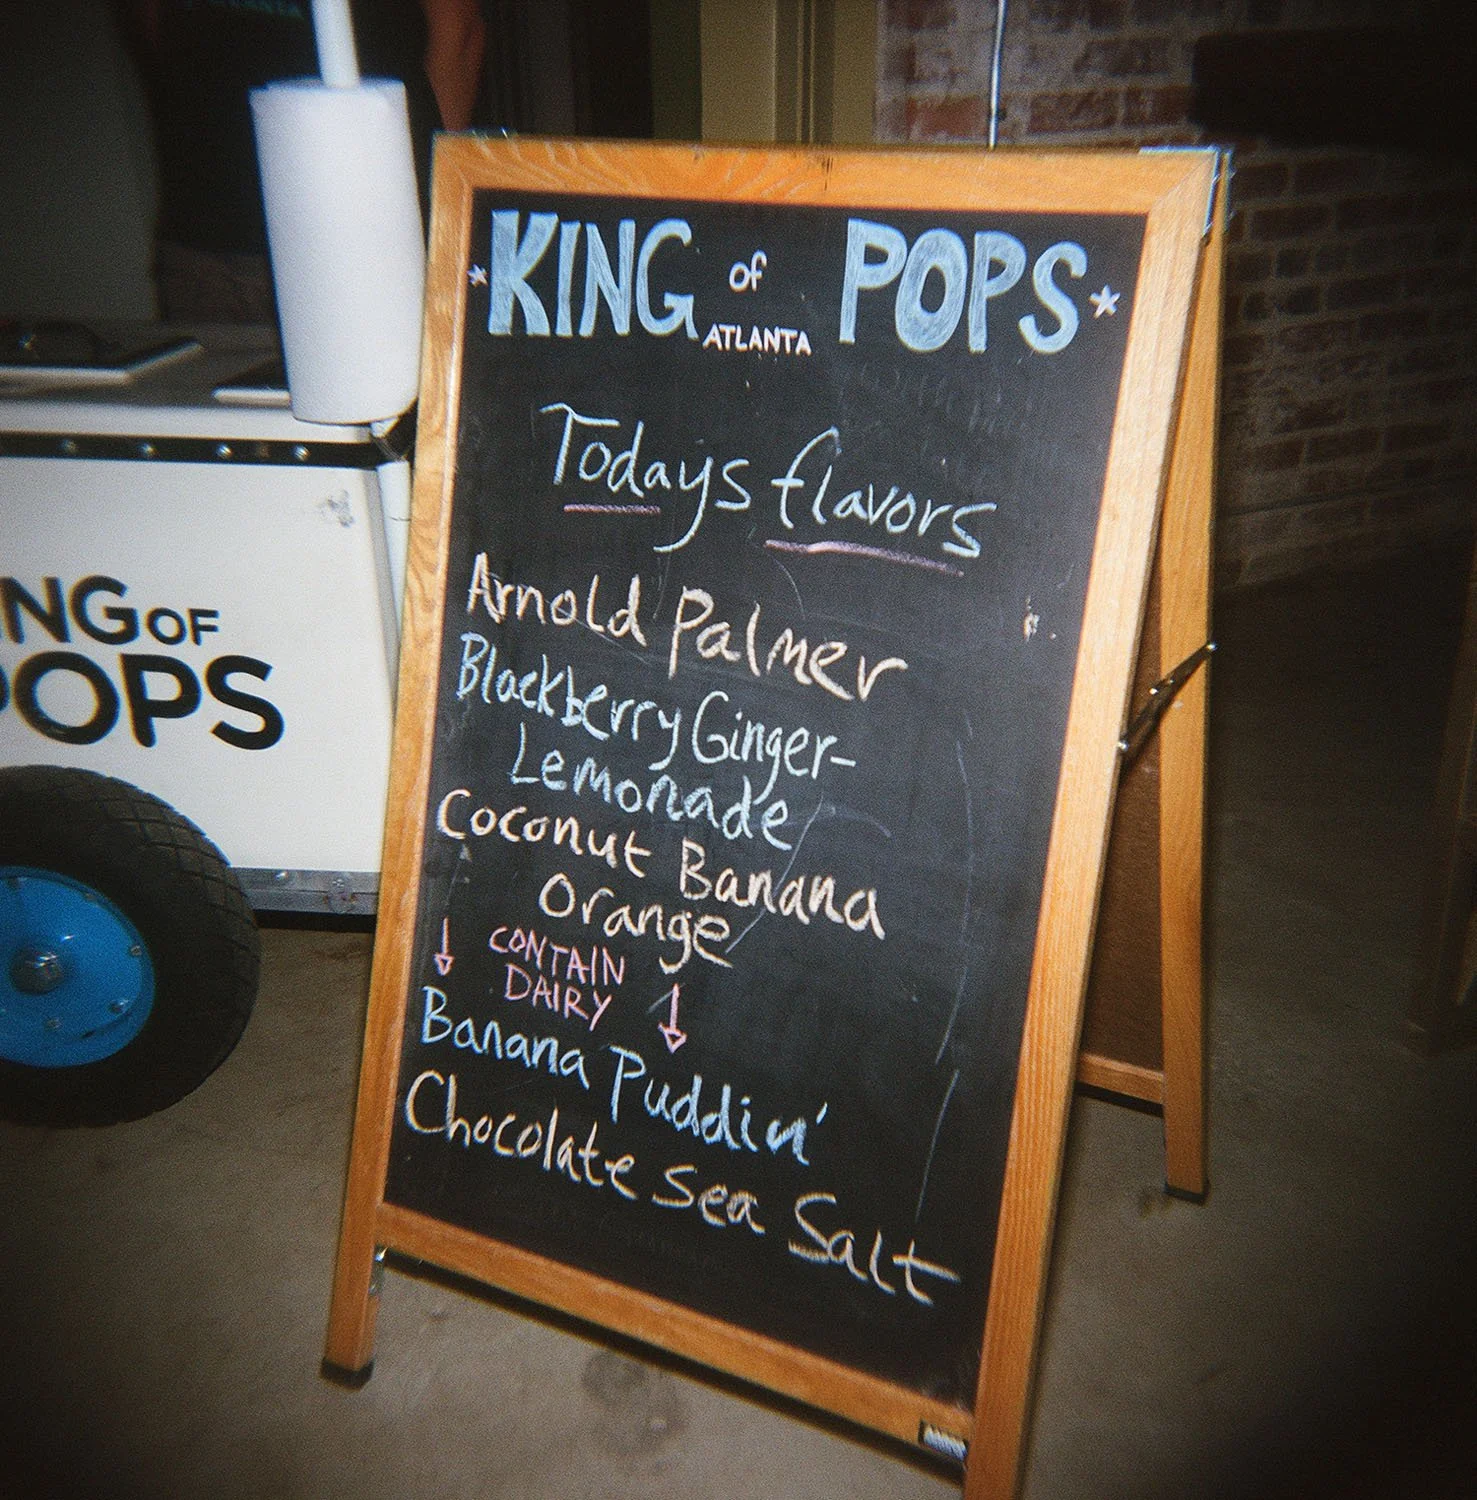 KING of POPS
ATLANTA
Todays flavors
Arnold Palmer
Blackberry Ginger-
Lemonade
Coconut Banana
Orange
CONTAIN
DAIRY
Banana Puddin'
Chocolate Sea Salt
NG OF
POPS